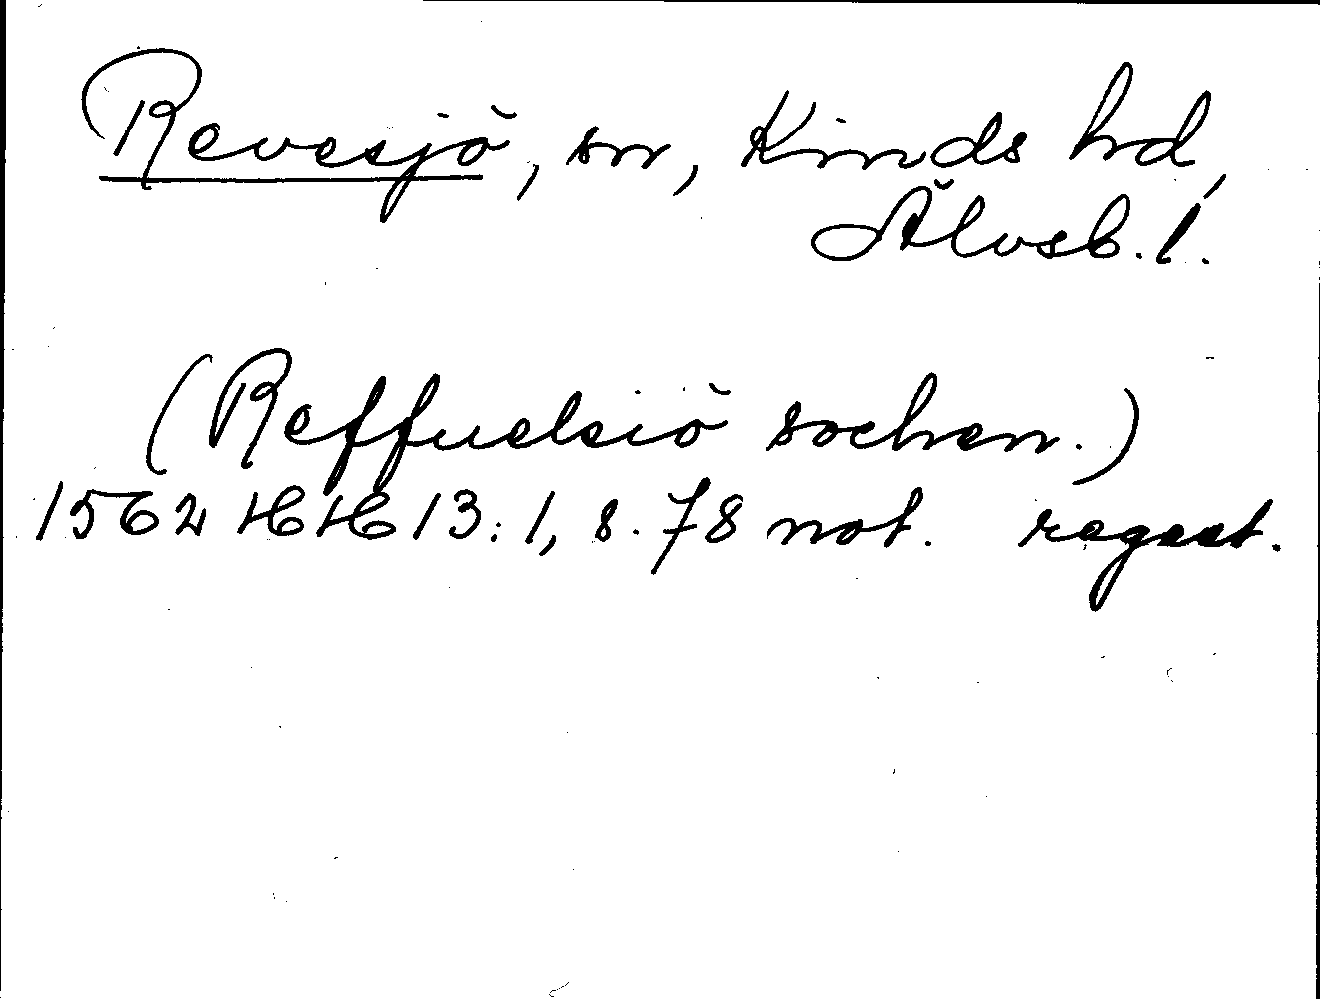 Revesjö, sn, Kinds hd,
Älvsb. l.
(Reffuelsiö sochen.)
1562 HH 13:1, s. 78 not. regest.